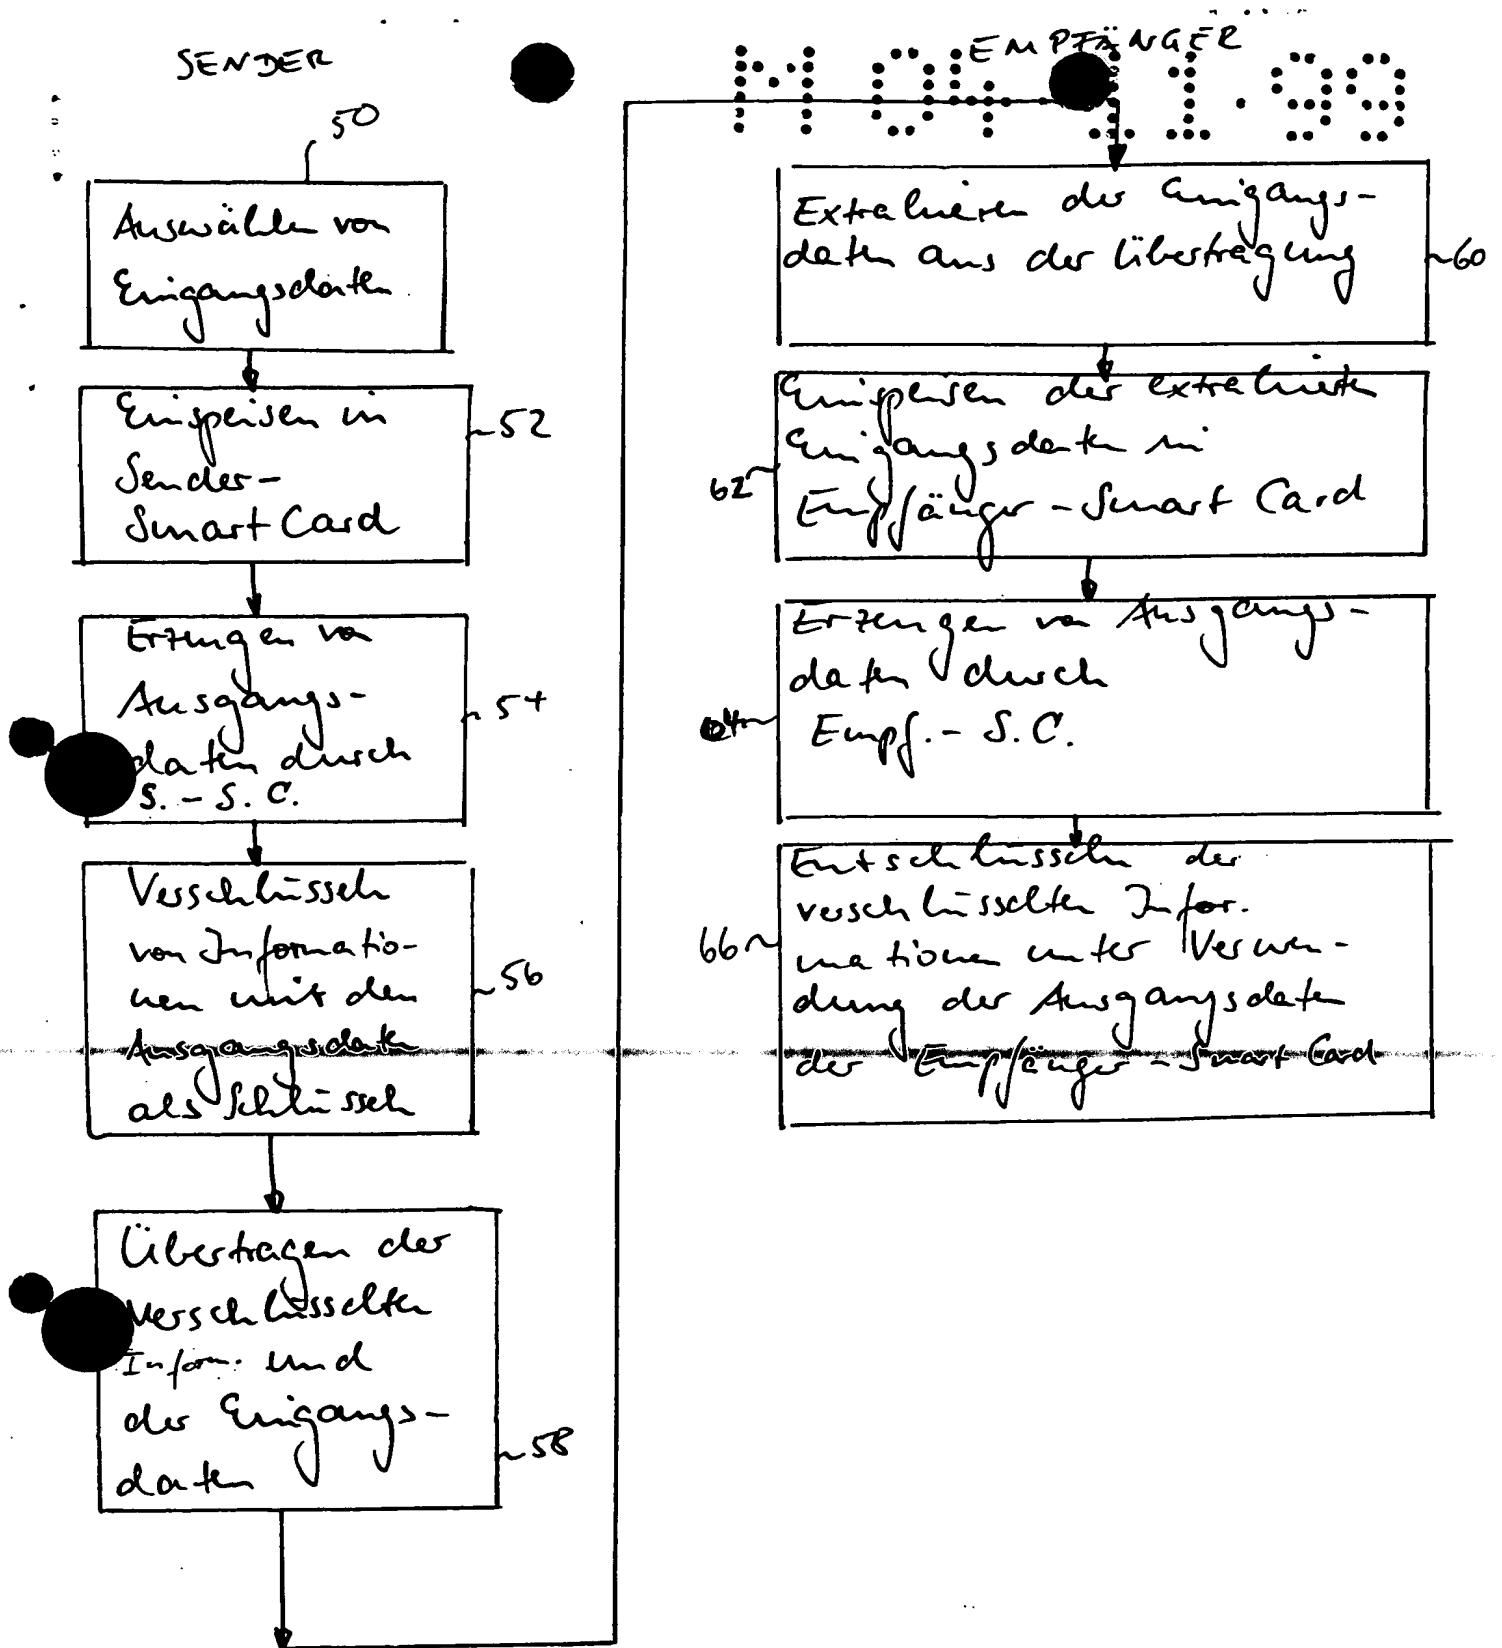 SENDER
50
Auswählen von
Eingangsdaten
Einspeisen in
Sender-
Smart Card
52
Erzeugen von
Ausgangs-
daten durch
S. - S. C.
54
Verschlüsseln
von Informatio-
nen mit den
Ausgangsdaten
als Schlüssel
56
Übertragen der
Verschlüsselten
Inform. und
der Eingangs-
daten
58
EMPFÄNGER
M 04.11.99
Extrahieren der Eingangs-
daten aus der Übertragung
60
Einspeisen der extrahierten
Eingangsdaten in
Empfänger-Smart Card
62
Erzeugen von Ausgangs-
daten durch
Empf. - S. C.
64
Entschlüsseln der
verschlüsselten Infor-
mationen unter Verwen-
dung der Ausgangsdaten
der Empfänger-Smart Card
66